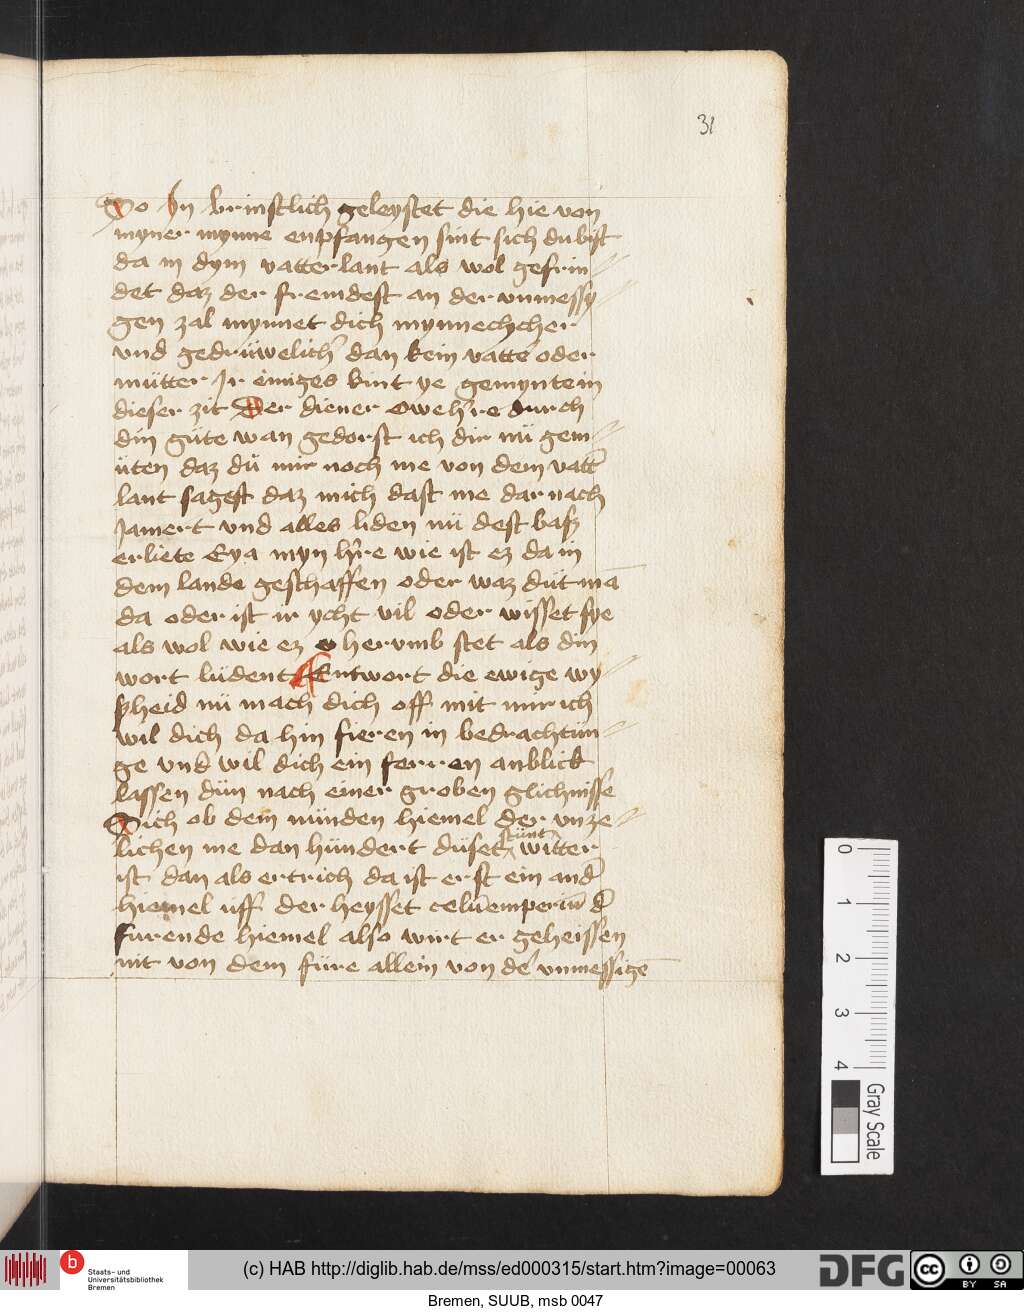 31
So In brinstlich geleystet die hie von
myner mynne enpfangen sint sich du bist
da in dym vatterlant als wol gefrin
det daz der fremdest an der vnmessy
gen zal mynnet dich mynnechcher
vnd gedrüwelich dan kein vatte oder
mütter Jr einiges kint ye gemynte in
dieser zit Der diener owe hre durch
din güte wan gedorst ich dir nü gem
üten daz dü mir noch me von dem vatt
lant sagest daz mich dast me dar nach
Jamert vnd alles liden nü dest basz
erliete Eya myn hre wie ist ez da in
dem lande geschaffen oder waz düt mā
da oder ist ir ycht vil oder wisset sye
als wol wie ez herumb stet als din
wort lüdent Entwort die ewige wy
sheid nü mach dich off mit mir ich
wil dich da hin fieren in bedrachtün
ge vnd wil dich ein ferren anblick
lassen dün nach einer groben glichnisse
Sich ob dem nünden hiemel der vnze
stünt
lichen me dan hündert düset witter
ist dan als ertrich da ist erst ein and
hiemel uff der heysset celūemperiū d
furende hiemel also wirt er geheissen
nit von dem füre allein von de vnmessigē
0
1
2
3
4
Gray Scale
b
Staats- und
Universitätsbibliothek
Bremen
(c) HAB http://diglib.hab.de/mss/ed000315/start.htm?image=00063
DFG
cc
BY
SA
Bremen, SUUB, msb 0047